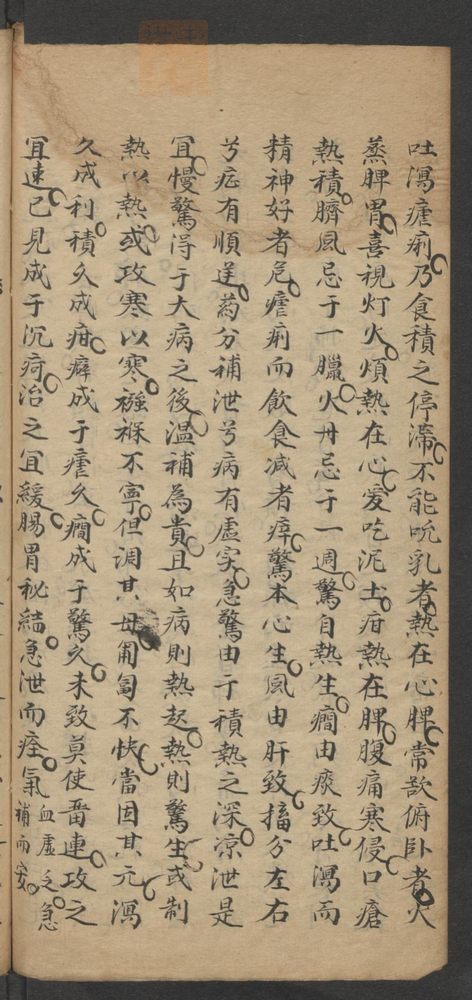 吐瀉瘧痢乃食積之停滯不能吮乳者熱在心脾常欲俯卧者火
蒸脾胃喜視灯火煩熱在心愛吃泥土疳熱在脾腹痛寒侵口瘡
熱積臍風忌于一臘火丹忌于一週驚自熱生癎由痰致吐瀉而
精神好者危瘧痢而飲食减者瘁驚本心生風由肝致搐分左右
兮症有順逆药分補泄兮病有虛实急驚由于積熱之深凉泄是
冝慢驚得于大病之後温補為貴且如病則熱起熱則驚生或制
熱以熱或攻寒以寒襁褓不寧但調其母匍匐不快當因其元瀉
久成利積久成疳癖成于瘧久癎成于驚久未致莫使畨連攻之
冝速已見成于沉疴治之冝緩腸胃秘結急泄而痊氣血虛乏急
補而安